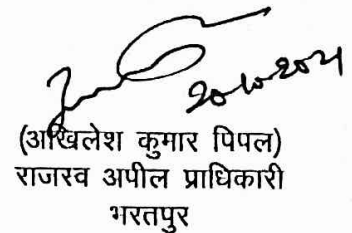 20.10.2021
(अखिलेश कुमार पिपल)
राजस्व अपील प्राधिकारी
भरतपुर